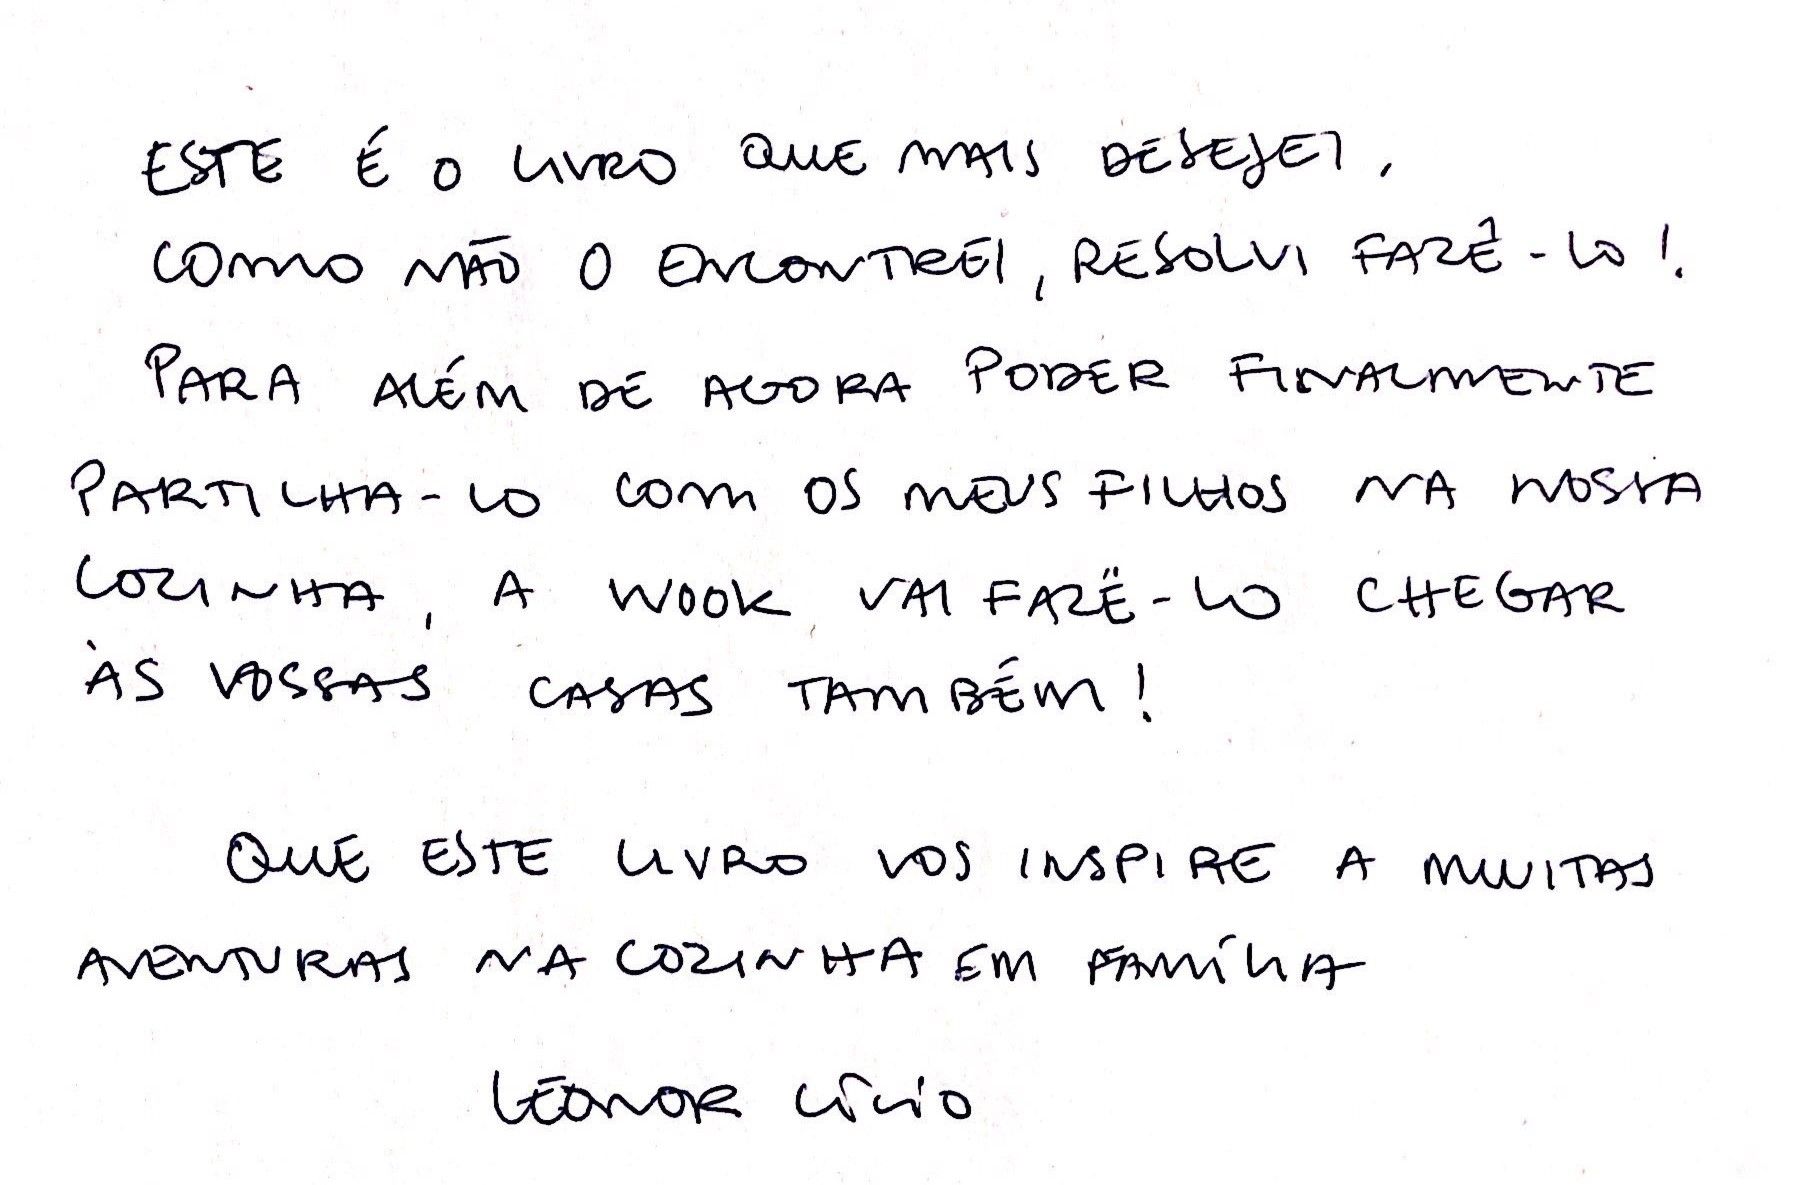 ESTE É O LIVRO QUE MAIS DESEJEI,
COMO NÃO O ENCONTREI, RESOLVI FAZÊ-LO!
PARA ALÉM DE AGORA PODER FINALMENTE
PARTILHA-LO COM OS MEUS FILHOS NA NOSSA
COZINHA, A WOOK VAI FAZÊ-LO CHEGAR
ÀS VOSSAS CASAS TAMBÉM!
QUE ESTE LIVRO VOS INSPIRE A MUITAS
AVENTURAS NA COZINHA EM FAMÍLIA
LEONOR CÍCIO